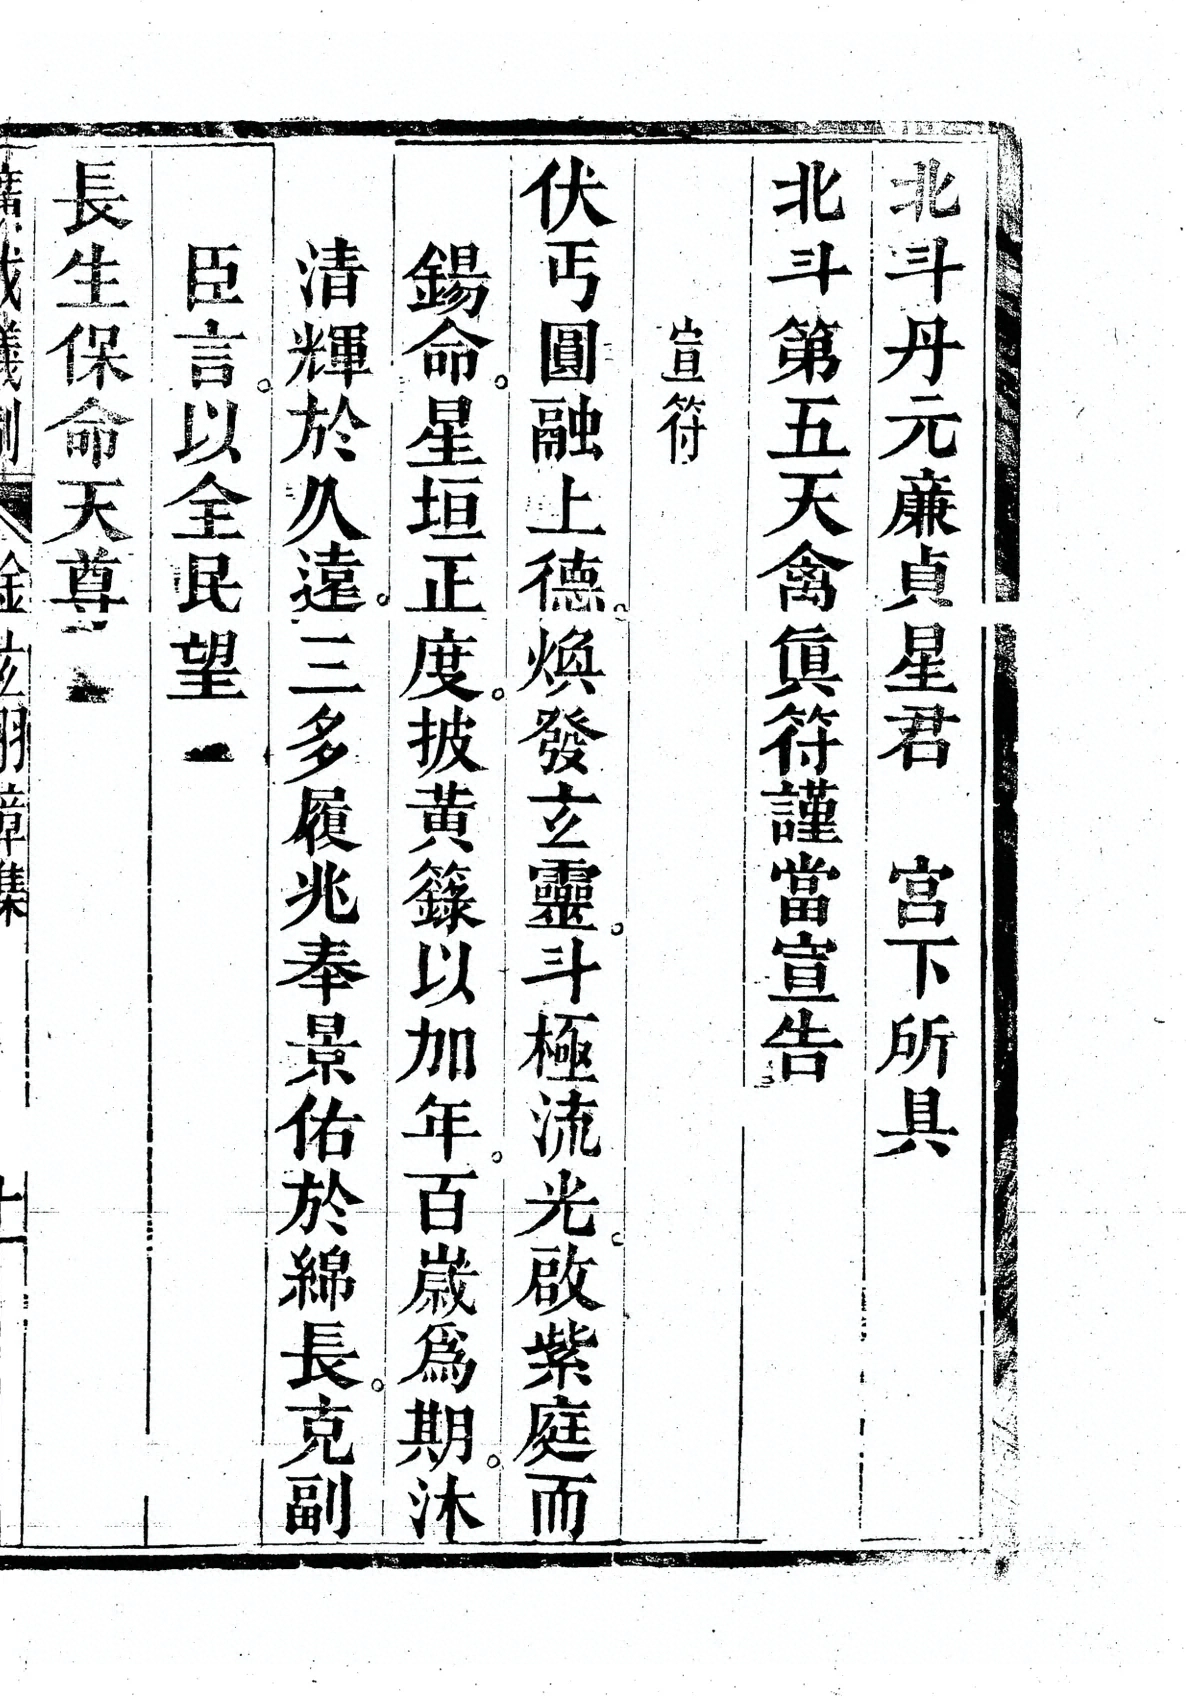 北斗丹元廉貞星君　宮下所具
北斗第五天禽眞符謹當宣告
宣符
伏丐圓融上德。煥發玄靈。斗極流光。啟紫庭而
錫命。星垣正度。披黃籙以加年。百嵗爲期。沐
清輝於久遠。三多履兆奉景佑於綿長。克副
臣言。以全民望
長生保命天尊
廣成儀制 金玄羽章集 十一